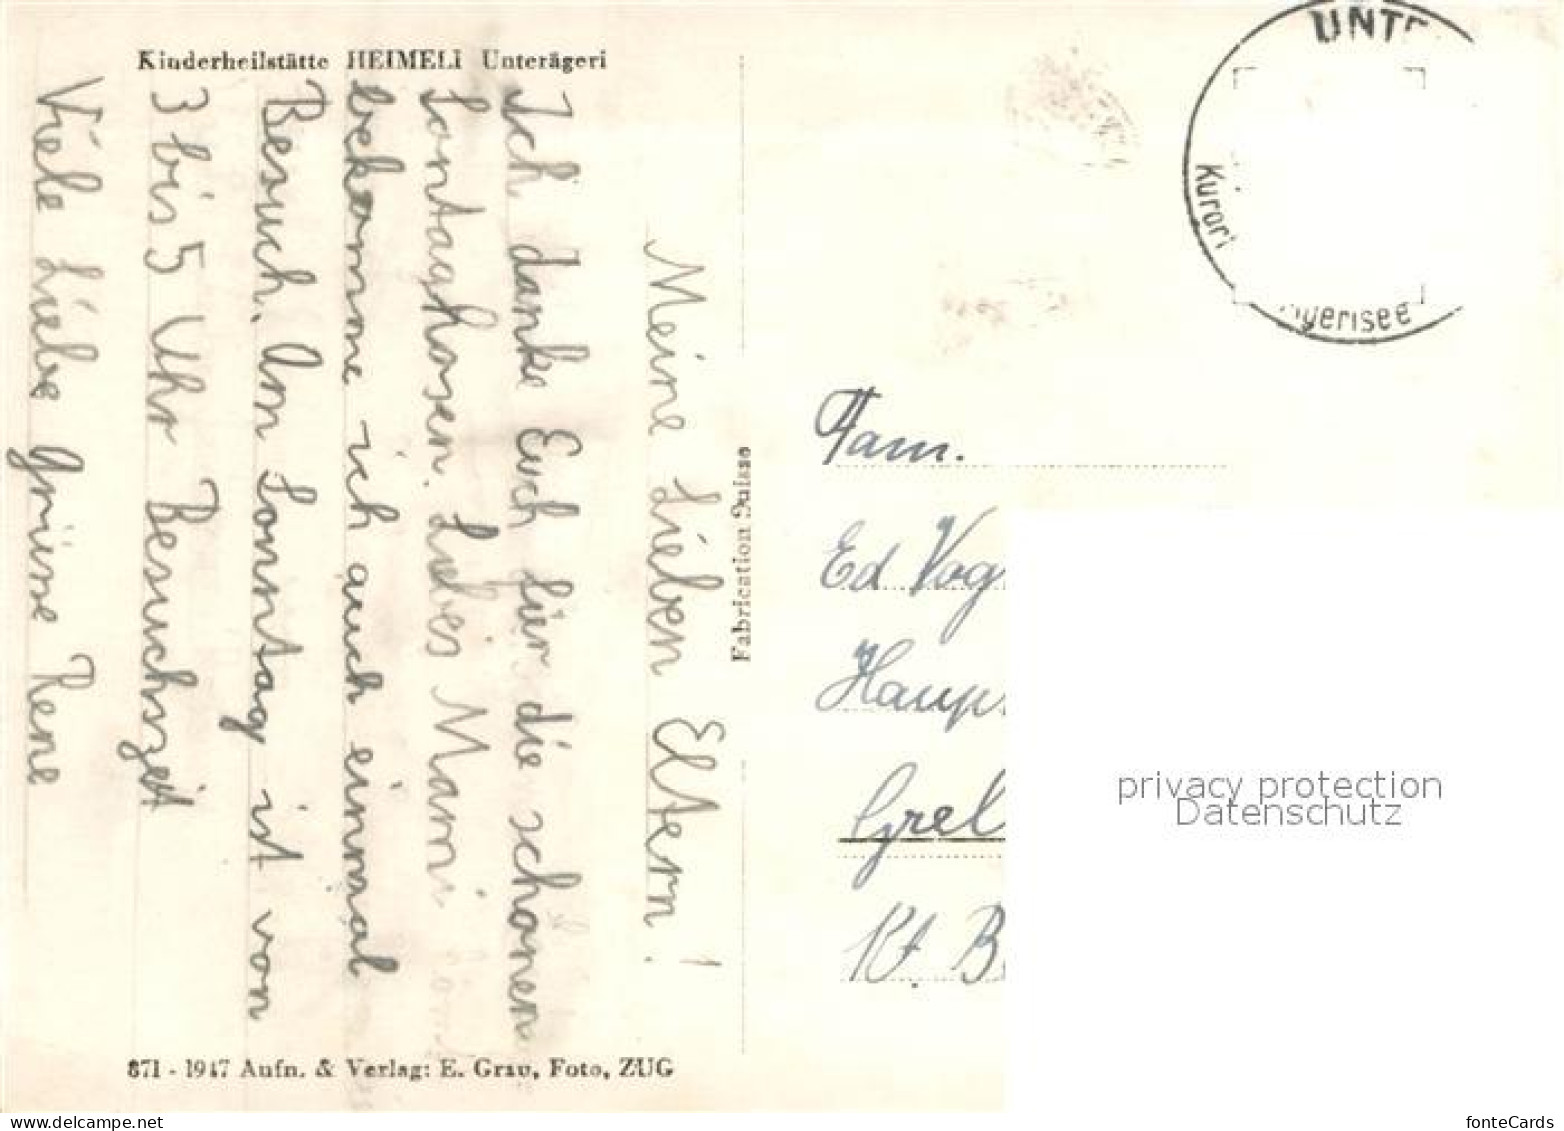 Kinderheilstätte HEIMELI Unterägeri
Meine Lieben Eltern!
Ich danke Euch für die schonen
Sontaghosen. Liebes Mami
bekomme ich auch einmal
Besuch. Am Sonntag ist von
3 bis 5 Uhr Besuchszeit
Viele Liebe Grüsse Rene
871 - 1947 Aufn. & Verlag: E. Grau, Foto, ZUG
Fabrication Suisse
UNTE
Kurort
gerisee
Fam.
Ed Vog
Haup
Grel
Kt. B
privacy protection
Datenschutz
www.delcampe.net
fonteCards